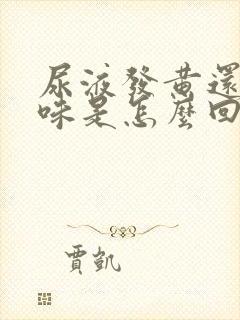 尿液發黄還
味是怎麼回
賈凱